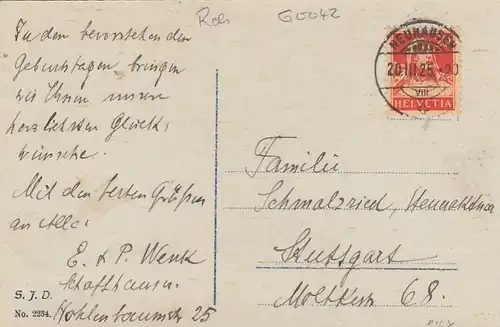 Roh
G0042
In den bevorstehenden
Geburtstagen bringen
wir Ihnen unsere
herzlichsten Glück-
wünsche.
Mit den besten Grüssen
an Alle:
E. & P. Wenk
Schaffhausen
Hohlenbaumstr 25
S. J. D.
No. 2234.
NEUHAUSEN
20.III.25
VIII
HELVETIA
Familie
Schmalzried,
Stuttgart
Moltkestr 68.